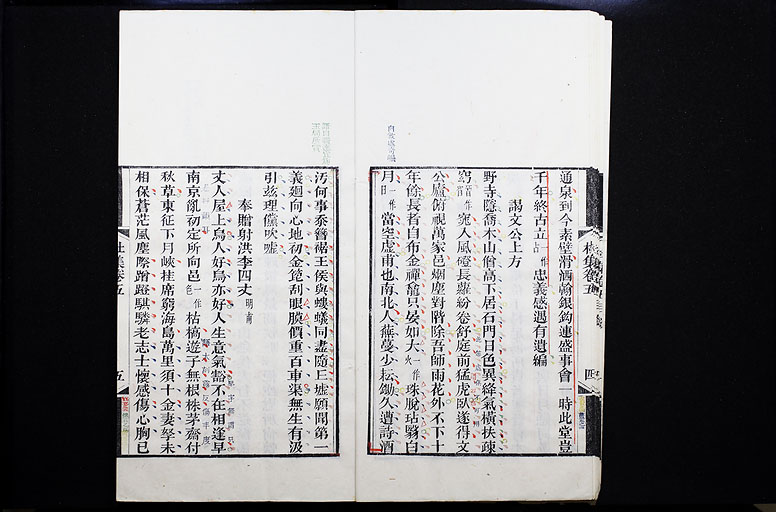 通泉到今素壁滑洒翰銀鉤連盛事會一時此堂豈
千年終古立一作占忠義感遇有遺編
謁文公上方
野寺隱喬木山僧高下居石門日色異絳氣橫扶疎
窈一作窅窕入風磴長蘿紛卷舒庭前猛虎臥遂得文
公廬俯視萬家邑烟塵對階除吾師雨花外不下十
年餘長者自布金禪龕只晏如大一作火珠脫玷翳白
月一作日當空虛甫也南北人蕪蔓少耘鋤久遭詩酒
汚何事忝簪裾王侯與螻蟻同盡隨丘墟願聞第一
義廻向心地初金箆刮眼膜價重百車渠無生有汲
引茲理儻吹噓
奉贈射洪李四丈明甫
丈人屋上烏人好烏亦好人生意氣豁不在相逢早
南京亂初定所向邑一作色枯槁遊子無根株茅齋付
秋草東征下月峽挂席窮海島萬里須十金妻孥未
相保蒼茫風塵際蹭蹬騏驎老志士懷感傷心胸已
杜集卷五
五